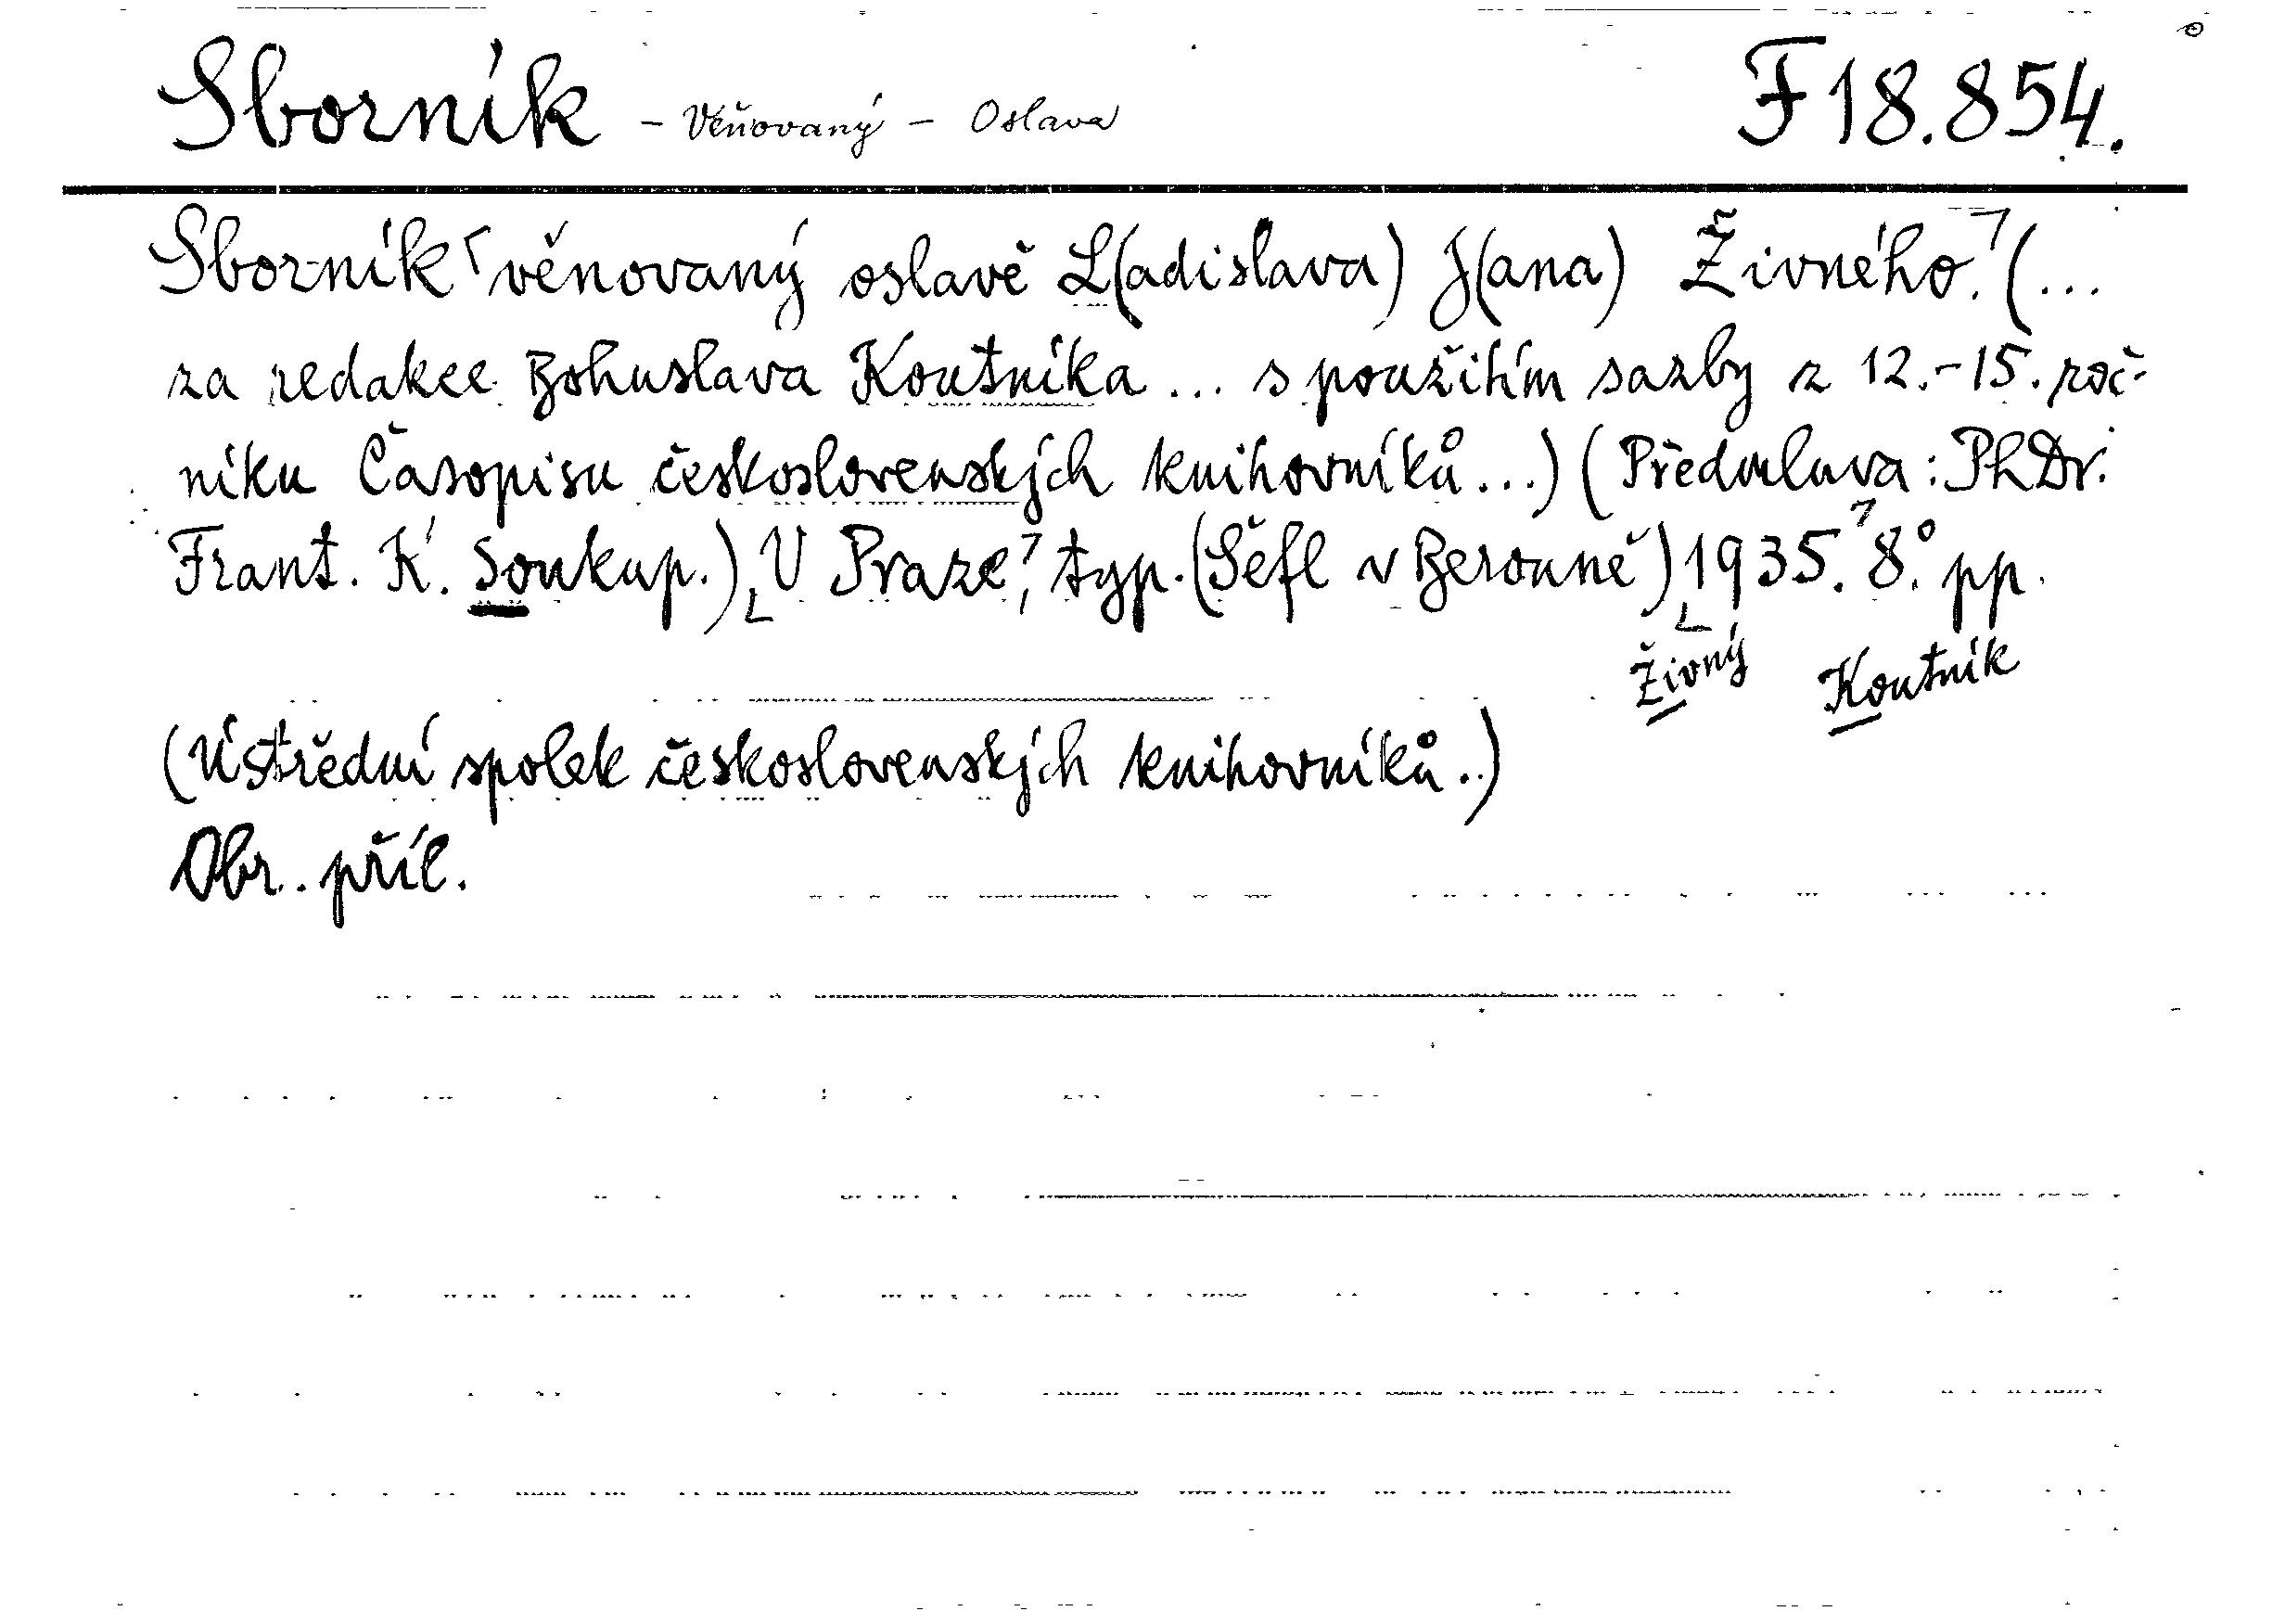 Sborník – Věňovaný – Oslava F 18.854.
Sborník věnovaný oslavě L(adislava) J(ana) Živného. (...
za redakce Bohuslava Koutníka ... s použitím sazby z 12.-15. roč-
níku Časopisu československých knihovníků...) (Předmluva: PhDr.
Frant. K. Soukup.) V Praze, typ. (Šefl v Berouně) 1935. 8.° pp.
Živný Koutník
(Ústřední spolek československých knihovníků..)
Obr. příl.